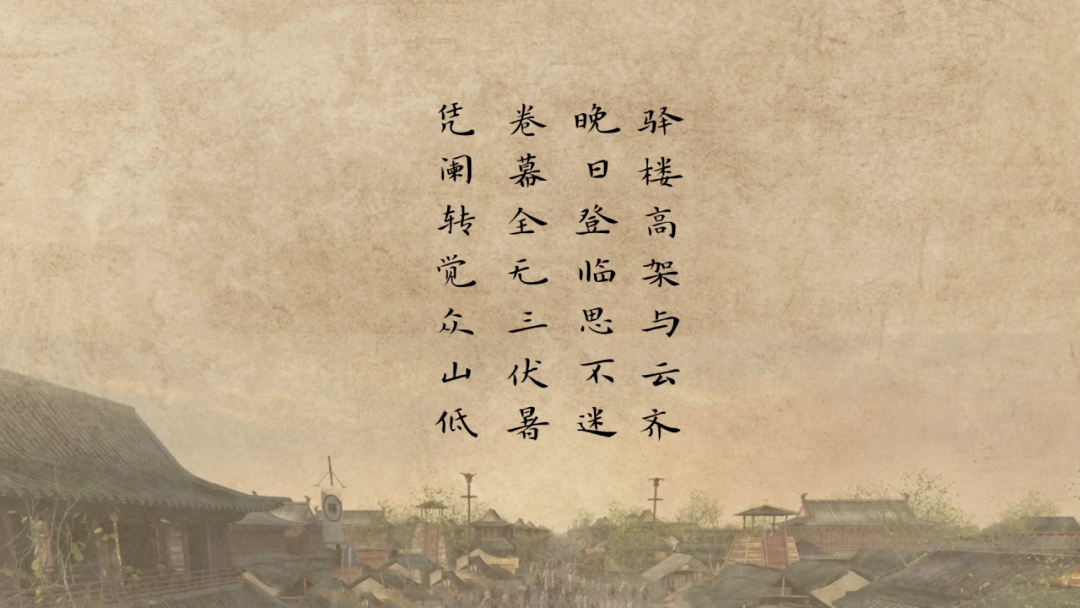 驿楼高架与云齐
晚日登临思不迷
卷幕全无三伏暑
凭阑转觉众山低